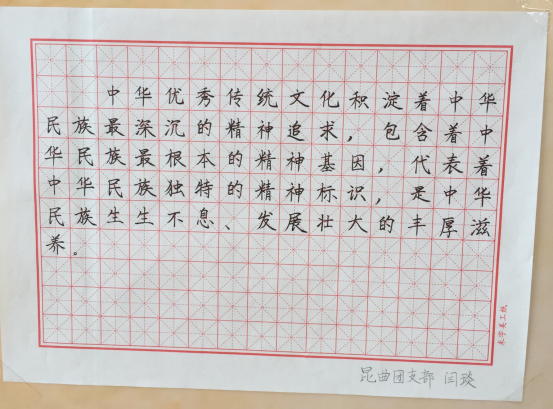 中华优秀传统文化积淀着中华
民族最深沉的精神追求，包含着中
华民族最根本的精神基因，代表着
中华民族独特的精神标识，是中华
民族生生不息、发展壮大的丰厚滋
养。
昆曲团支部 闫琰